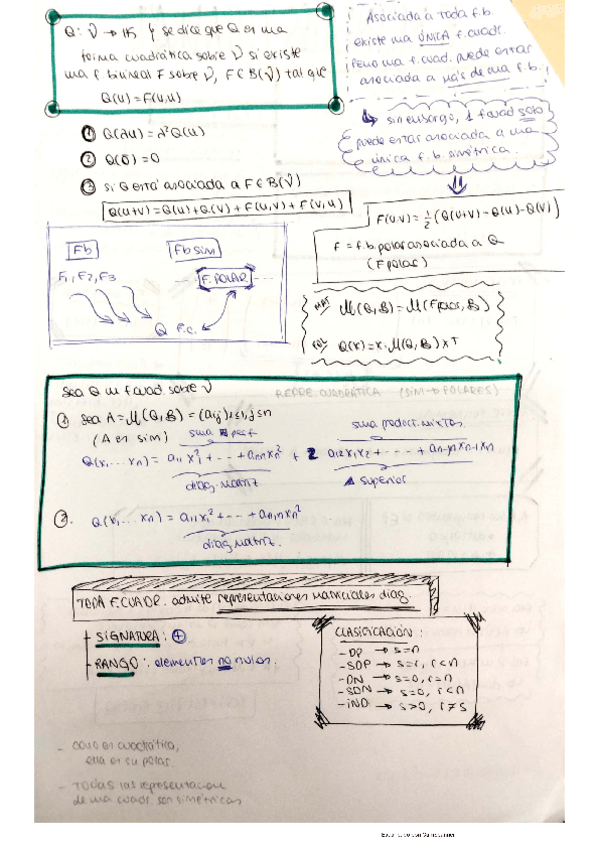 Q: V → K se dice que Q es una
forma cuadrática sobre V si existe
una f bilineal F sobre V, F ∈ B(V) tal que
Q(u) = F(u,u)
Asociada a toda f.b.
existe una ÚNICA f. cuadr.
Pero una f. cuad. puede estar
asociada a más de una f.b.
↳ sin embargo, 1 f cuad solo
puede estar asociada a una
única f.b. simétrica.
① Q(λu) = λ²Q(u)
② Q(0) = 0
③ si Q está asociada a F ∈ B(V)
Q(u+v) = Q(u) + Q(v) + F(u,v) + F(v,u)
F(u,v) = 1/2 (Q(u+v) - Q(u) - Q(v))
F = f.b. polar asociada a Q
(F polar)
Fb Fb sim
F1, F2, F3 F. POLAR
Q F.C.
M(Q,B) = M(Fpolar, B)
Q(x) = x · M(Q,B) x T
Sea Q un f cuad. sobre V
REPRE. CUADRÁTICA (SIM → POLARES)
① Sea A = M(Q,B) = (aij) 1≤i,j≤n
(A es sim)
suma product. mixtos
Q(x1 ... xn) = a11 x1² + --- + ann xn² + 2 a12 x1 x2 + --- + an-1n xn-1 xn
diag. matriz superior
2. Q(x1 ... xn) = a11 x1² + --- + ann xn²
diag matriz.
TODA F. CUADR. admite representaciones matriciales diag.
- SIGNATURA: +
- RANGO: elementos no nulos.
CLASIFICACIÓN:
- DP → s=n
- SDP → s=r, r<n
- DN → s=0, r=n
- SDN → s=0, r<n
- IND → s>0, r≠s
- como es cuadrática,
ella es su polar.
- TODAS las representacion
de una cuadr. son simétricas